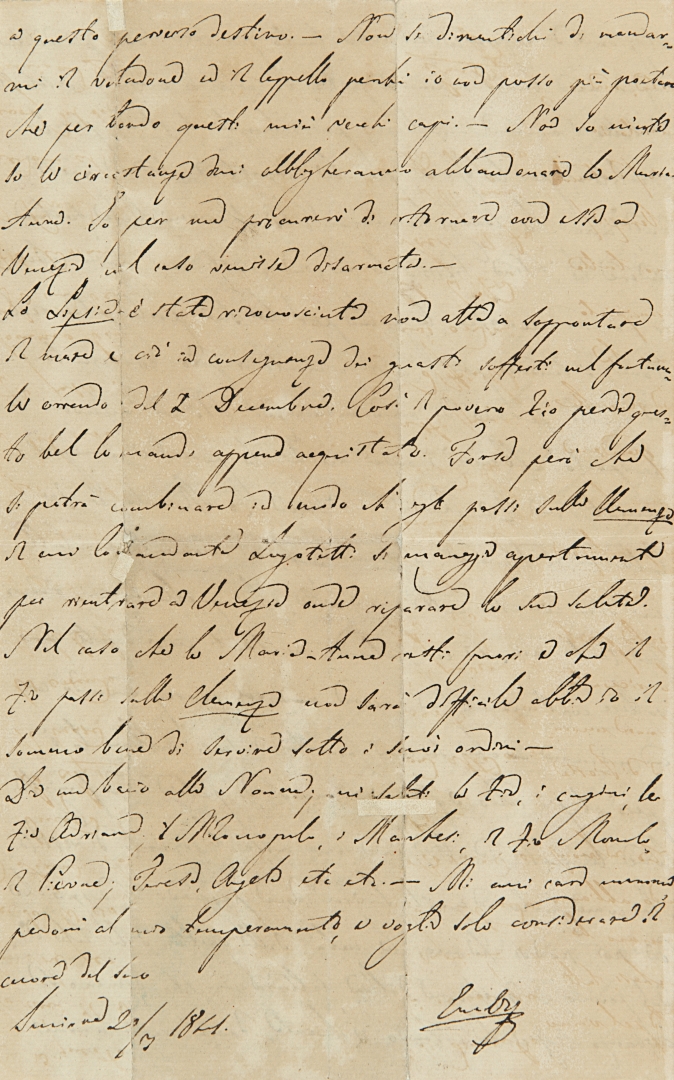 a questo perverso destino. — Non si dimentichi di mandar=
mi il e il cappello perché io non posso più portare
che per bordo questi miei vecchi capi. — Non so niente
se le circostanze mi obbligheranno abbandonare la Maria
Anna. Io per me procurerò di ritornare con essa a
Venezia nel caso venisse disarmata. —
La Lipsia è stata riconosciuta non atta a sopportare
il mare e ciò in conseguenza dei guasti sofferti nel fortuna=
le orrendo del 2 Decembre. Così il povero Zio perde ques=
to bel comando appena acquistato. Forse però che
si potrà combinare in modo ch'egli passi sulla Clemenza
il cui Comandante Logotetti si maneggia apertamente
per rientrare a Venezia onde riparare la sua salute.
Nel caso che la Maria-Anna resti fuori e che il
Zio passi sulla Clemenza non sarà difficile abbia io il
sommo bene di servire sotto i suoi ordini —
Dia un bacio alla Nonna; mi saluti la Zia, i cugini, la
Zia Adriana, i i il Zio
il Teresa, etc etc. — Mi ami cara mamma,
perdoni al mio temperamento, e voglia solo considerare il
cuore del suo
Smirne 29/3 1841. Emilio